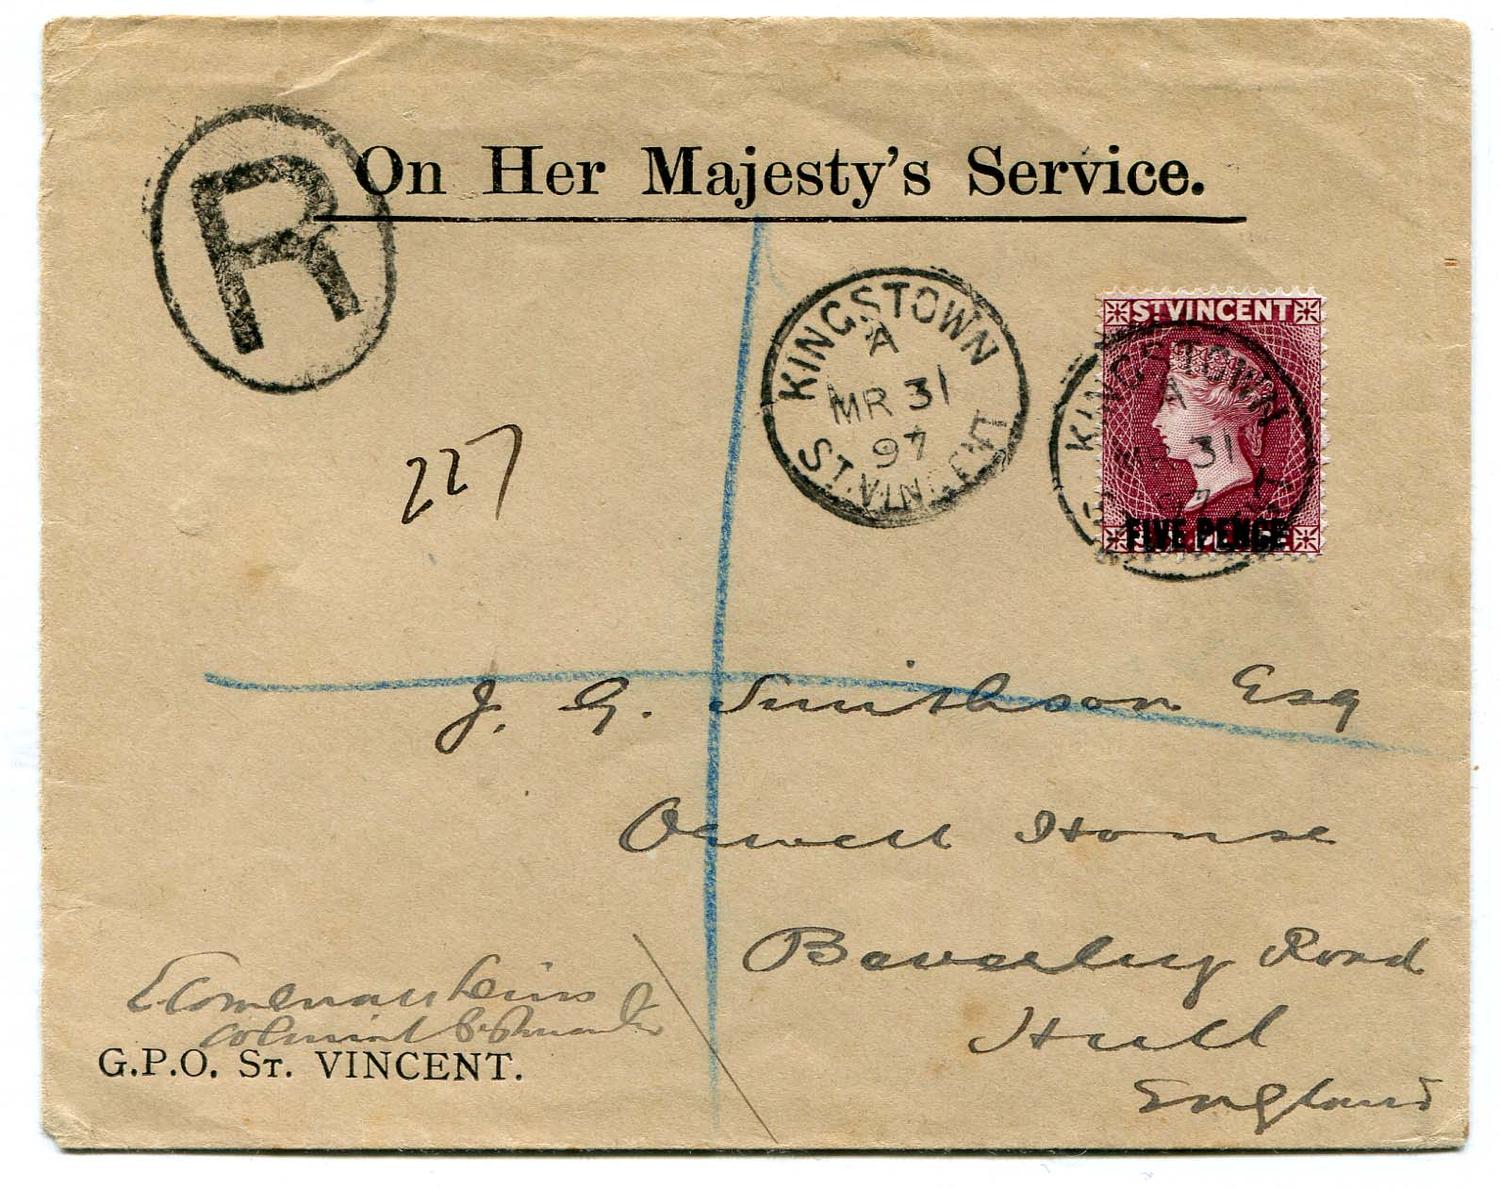 On Her Majesty's Service.
R
KINGSTOWN
A
MR 31
97
ST. VINCENT
ST VINCENT
KINGSTOWN
A
31
97
FIVE PENCE
227
J. G. Smithson Esq
Orwell House
Beverley Road
Hull
England
Colonial Postmaster
G.P.O. ST. VINCENT.